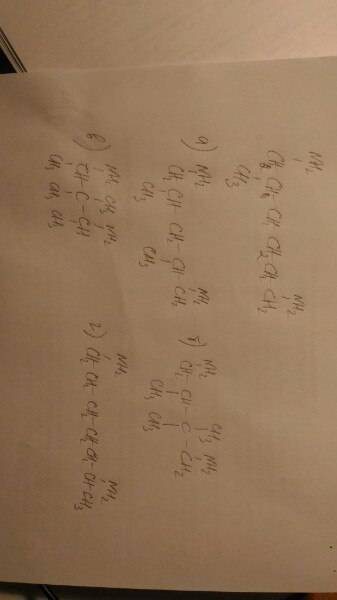 NH2 NH2
CH2 CH2 CH CH2 CH CH2
CH3
а) NH2 NH2
CH2 CH - CH2 - CH - CH2
CH3 CH3
б) NH2 CH3 NH2
CH2 - CH - C - CH2
CH3 CH3
в) NH2 CH3 NH2
CH - C - CH
CH3 CH3 CH3
г) NH2 NH2
CH2 CH2 - CH2 - CH2 CH2 - CH - CH3